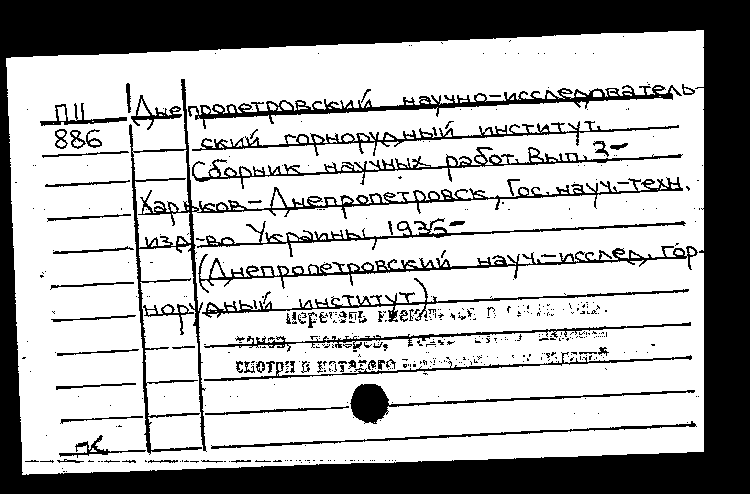 П11 Днепропетровский научно-исследователь-
886 ский горнорудный институт.
Сборник научных работ. Вып. 3-
Харьков-Днепропетровск, Гос. науч.-техн.
изд-во Украины, 1935-
(Днепропетровский науч.-исслед. гор-
норудный институт).
Перечень имеющихся в
томов, номеров, этого издания
смотри в каталоге